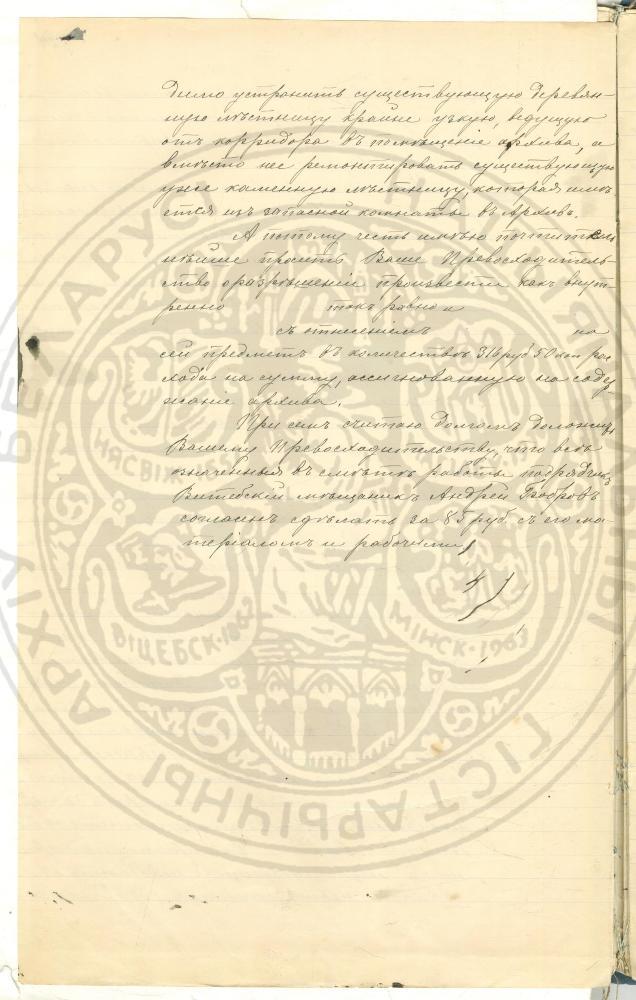 димо устранить существующую деревян-
ную лѣстницу крайне узкую, ведущую
отъ корридора въ помѣщеніе архива, а
вмѣсто нее ремонтировать существующую
уже каменную лѣстницу, которая имѣ
ется изъ запасной комнаты въ Архивъ.
А потому честь имѣю почтитель
нѣйше просить Ваше Превосходитель
ство о разрѣшеніи произвести какъ внут
ренно такъ равно и
съ отнесеніемъ на
сей предметъ въ количествѣ 316 руб 50 коп рас
хода на сумму, ассигнованную на содер
жаніе архива.
При семъ считаю долгомъ доложить
Вашему Превосходительству, что всѣ
означенныя въ смѣтѣ работы подрядчикъ
Витебскій мѣщанинъ Андрей Бобровъ
согласенъ сдѣлать за 85 руб. съ его ма-
теріаломъ и рабочими
ГІСТАРЫЧНЫ
АРХІЎ
БЕЛАРУСІ
НЯСВІЖ
ВІЦЕБСК·1863
МІНСК·1963